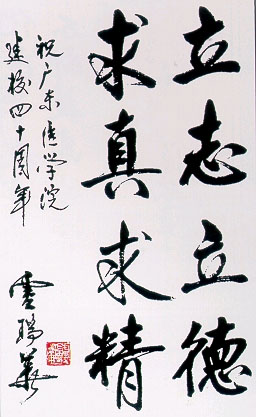 立志立德
求真求精
祝广东医学院
建校四十周年
雲瑞英